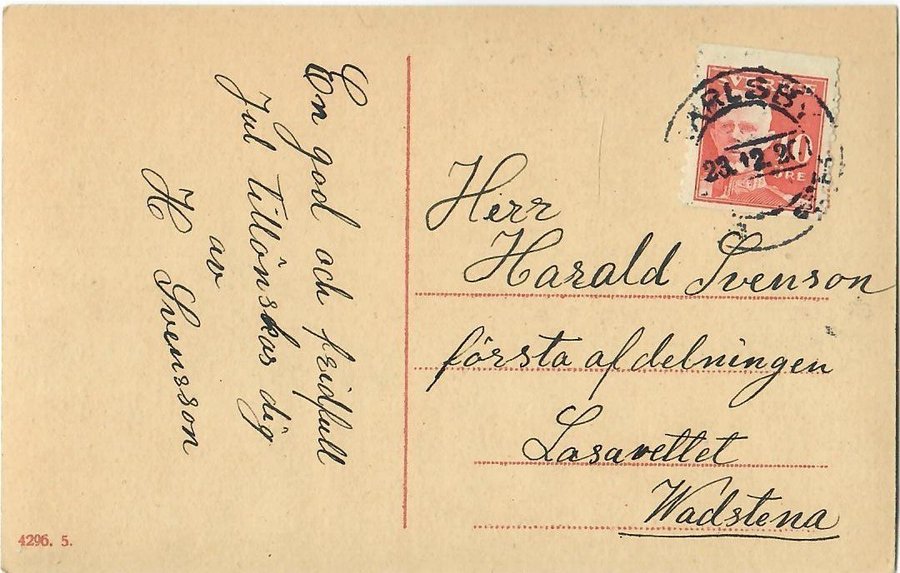 En god och fridfull
Jul Tillönskas dig
av
H Svensson
Herr
Harald Svenson
första afdelningen
Lasarettet
Wadstena
SVERIGE
ÖRE
23.12.20
4296. 5.